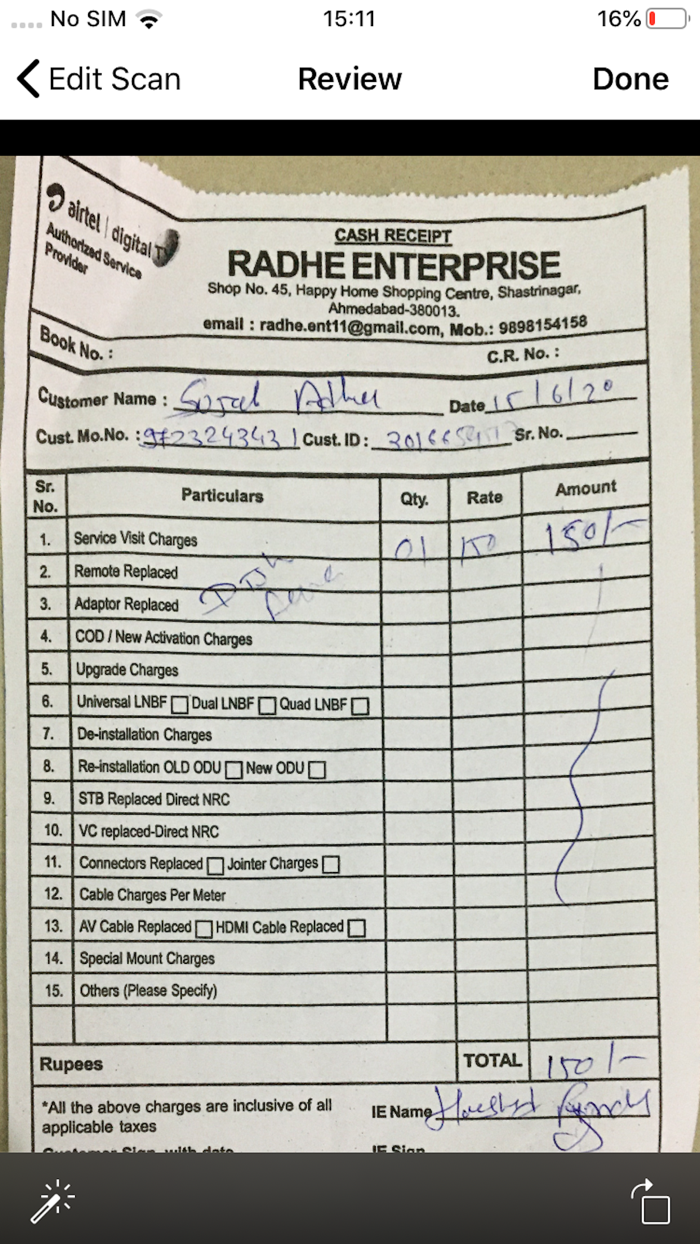 No SIM 15:11 16%
Edit Scan Review Done
airtel digital TV
Authorized Service
Provider
CASH RECEIPT
RADHE ENTERPRISE
Shop No. 45, Happy Home Shopping Centre, Shastrinagar,
Ahmedabad-380013.
email : radhe.ent11@gmail.com, Mob.: 9898154158
Book No. : C.R. No. :
Customer Name : Date 15/6/20
Cust. Mo.No. : Cust. ID : Sr. No.
Sr. No. Particulars Qty. Rate Amount
1. Service Visit Charges 01 150 150/-
2. Remote Replaced
3. Adaptor Replaced
4. COD / New Activation Charges
5. Upgrade Charges
6. Universal LNBF Dual LNBF Quad LNBF
7. De-installation Charges
8. Re-installation OLD ODU New ODU
9. STB Replaced Direct NRC
10. VC replaced-Direct NRC
11. Connectors Replaced Jointer Charges
12. Cable Charges Per Meter
13. AV Cable Replaced HDMI Cable Replaced
14. Special Mount Charges
15. Others (Please Specify)
Rupees TOTAL 150/-
*All the above charges are inclusive of all
applicable taxes
IE Name
Customer Sign. with date IE Sign